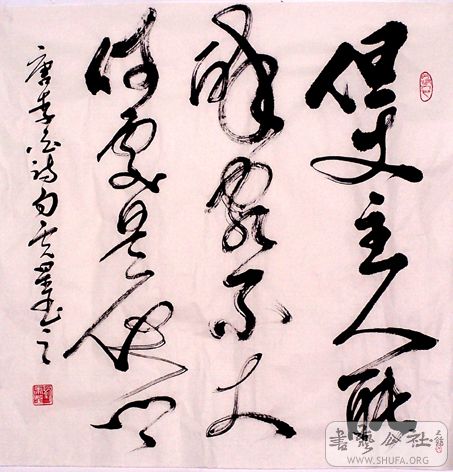 但使主人能
醉客不知
何處是他鄉
唐李白詩句
書藝公社
WWW.SHUFA.ORG